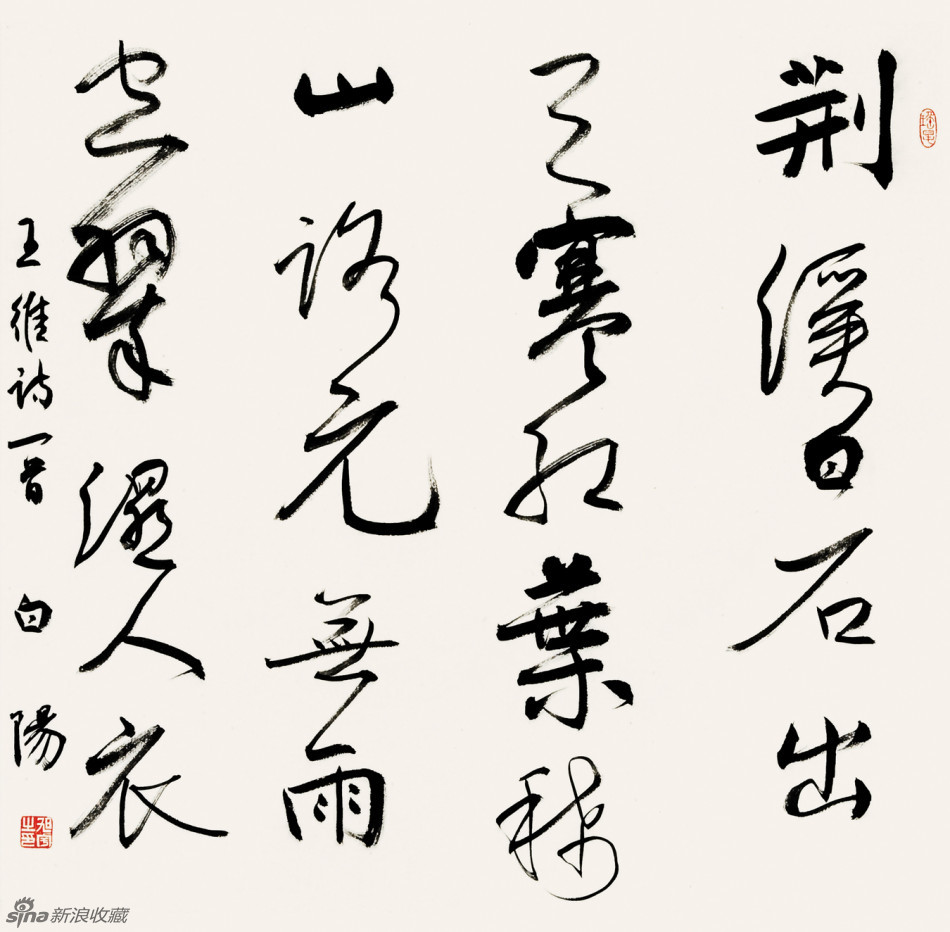 荆溪白石出
天寒紅葉稀
山路元無雨
空翠濕人衣
王維詩一首 白陽
sina 新浪收藏